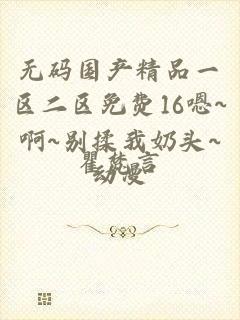 无码国产精品一
区二区免费16嗯~
啊~别揉我奶头~
动漫
瞿梵言